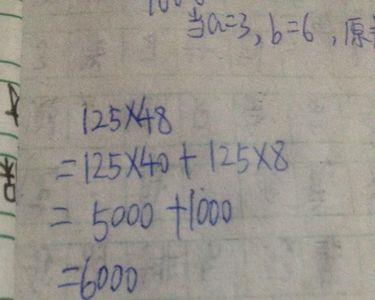 当a=3,b=6,原
125×48
=125×40+125×8
=5000+1000
=6000